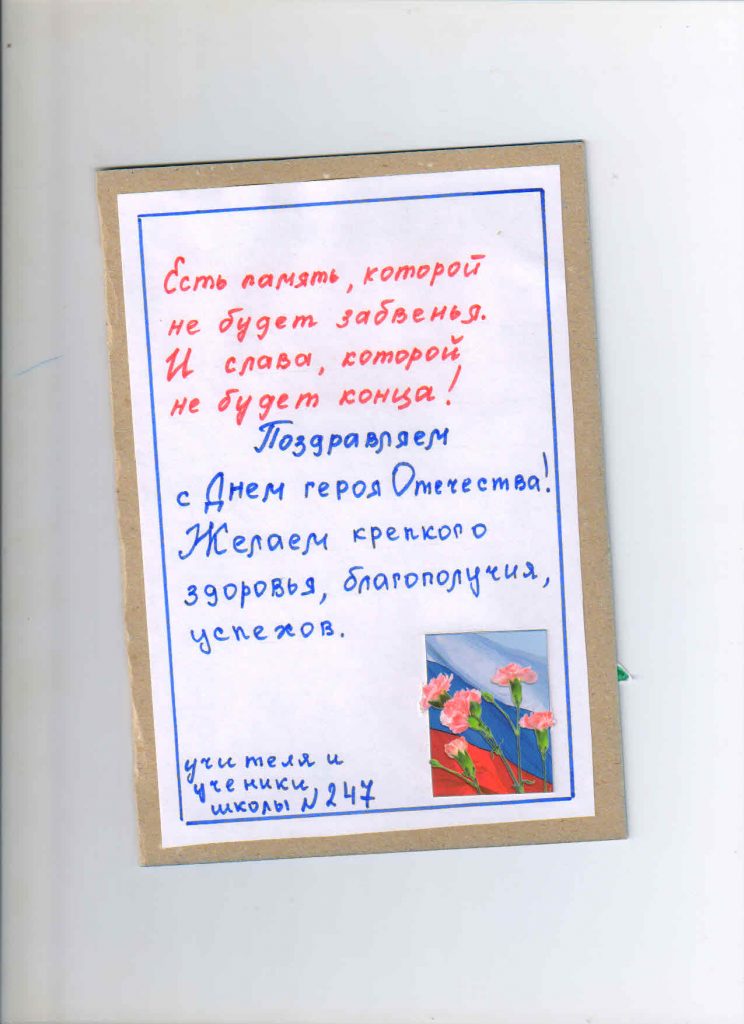 Есть память, которой
не будет забвенья.
И слава, которой
не будет конца!
Поздравляем
с Днем героя Отечества!
Желаем крепкого
здоровья, благополучия,
успехов.
учителя и
ученики,
школы №247